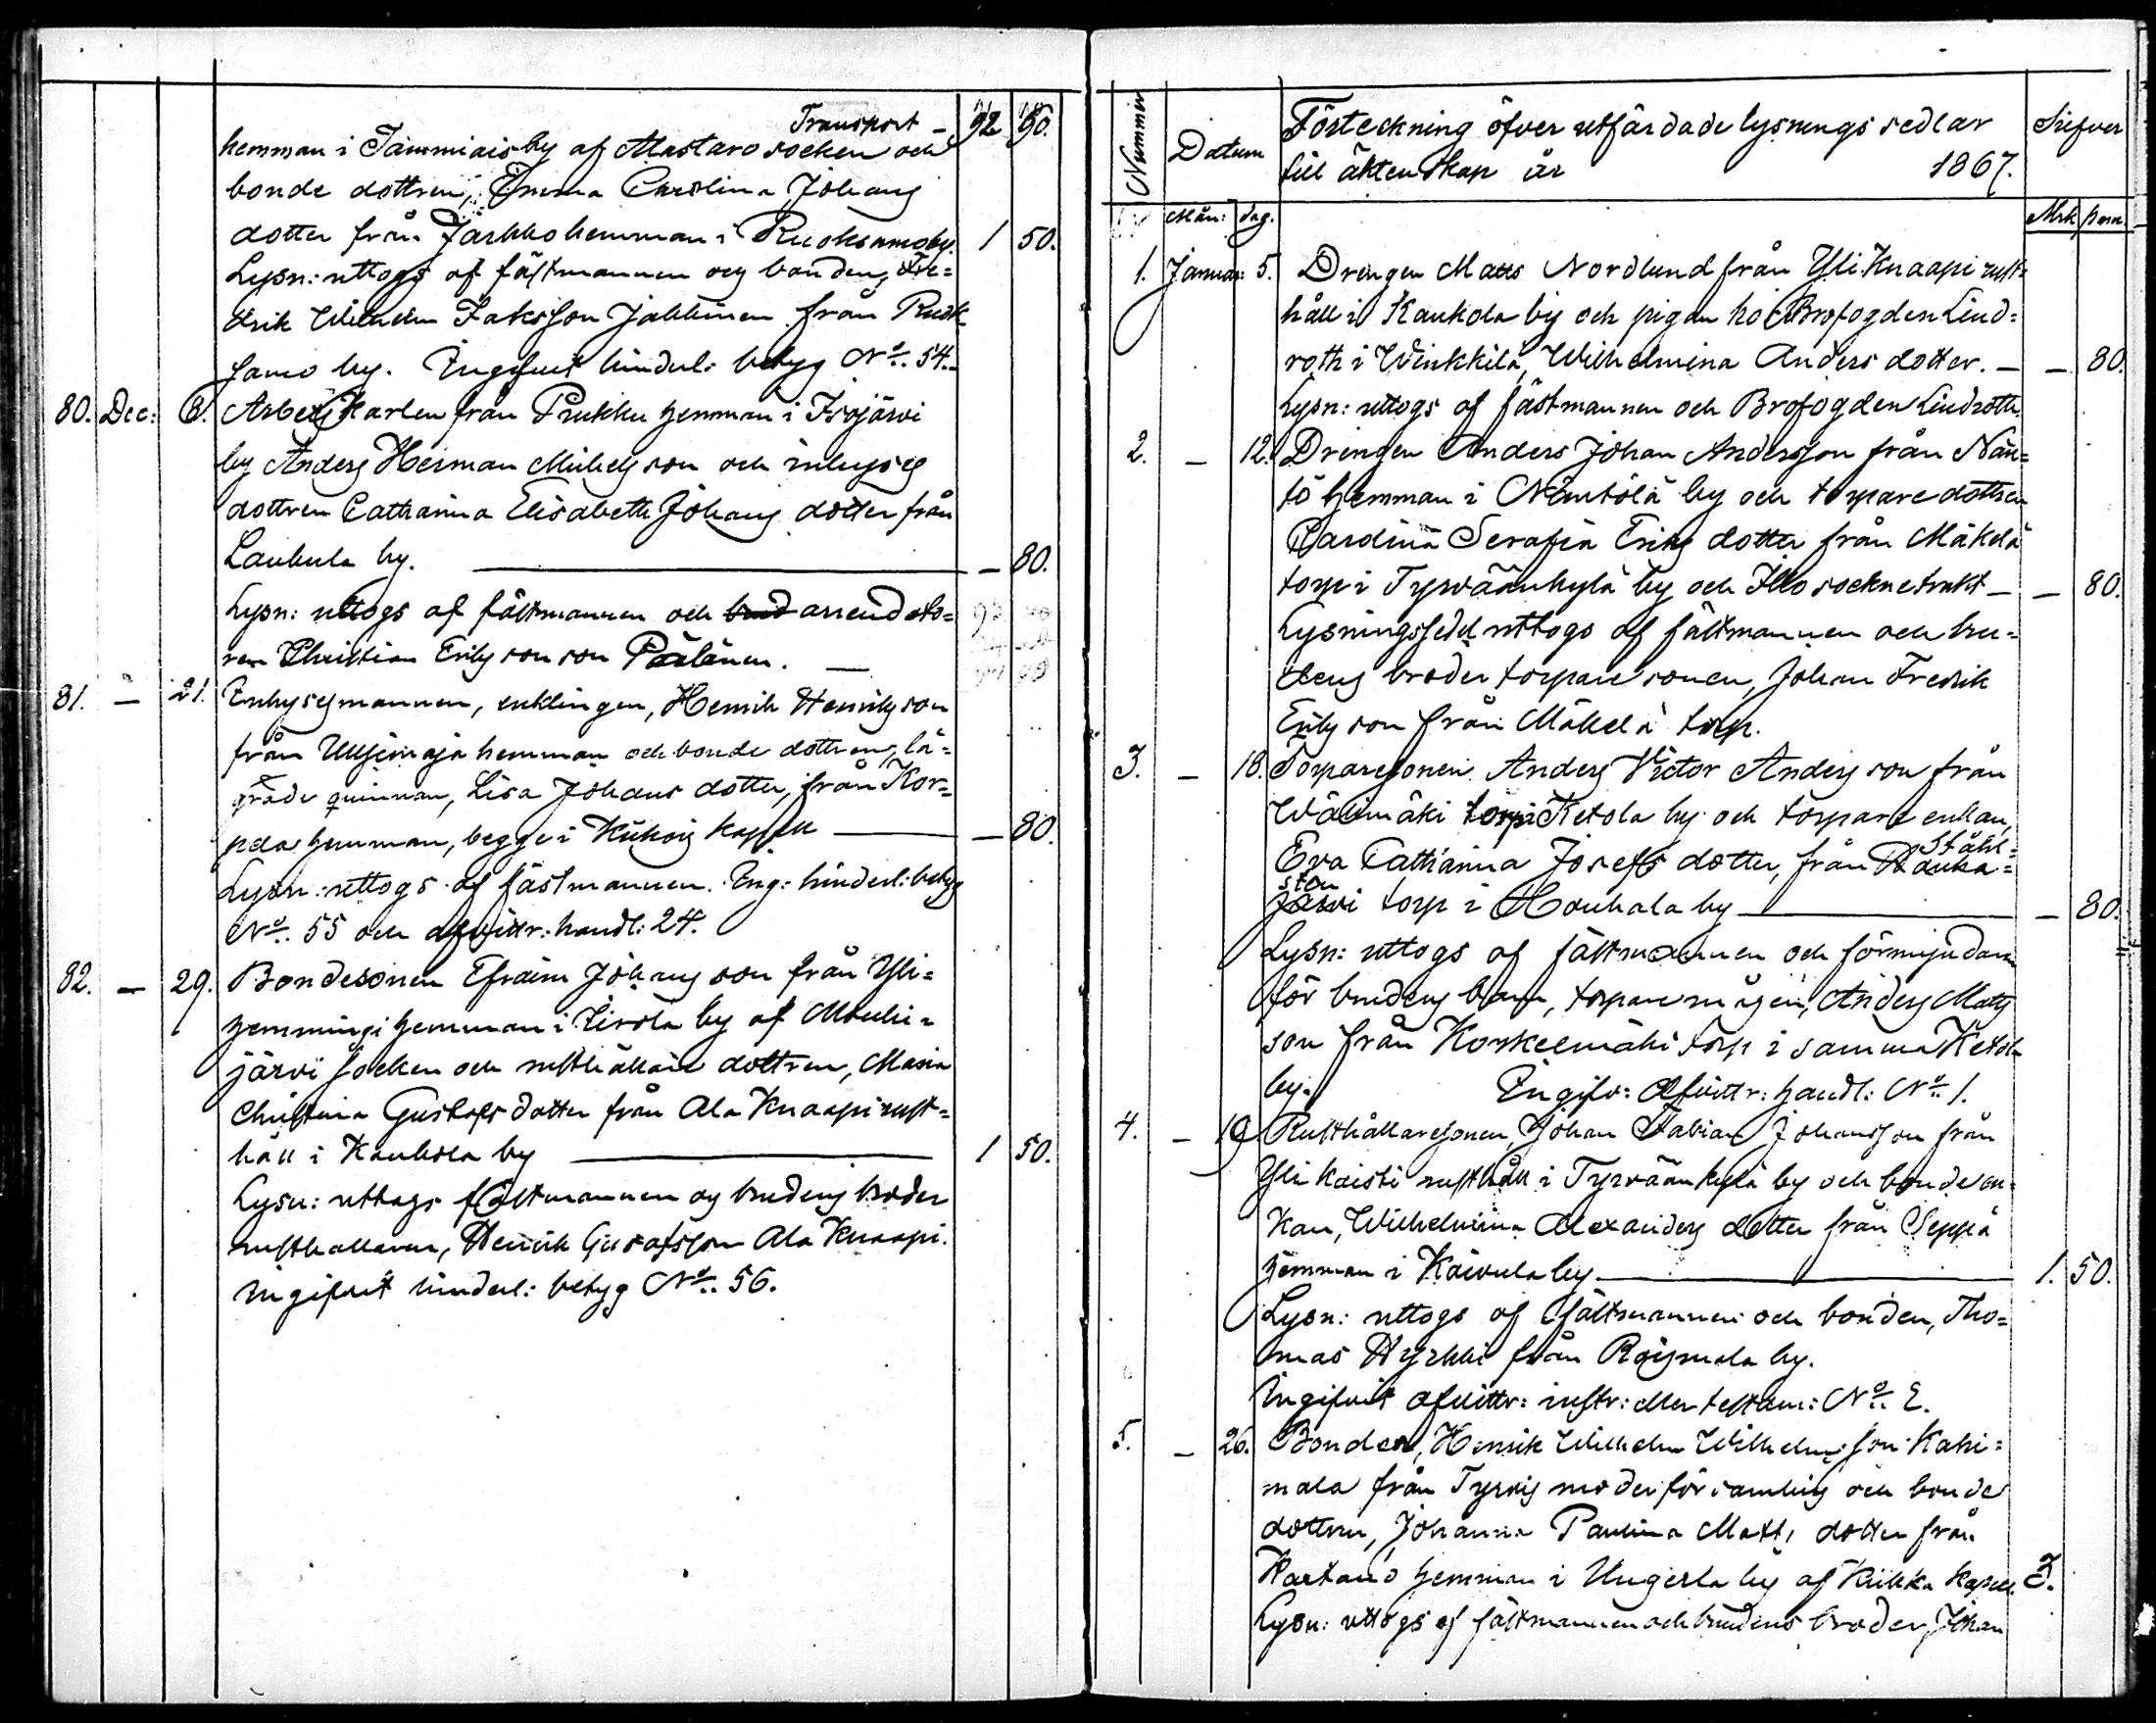 Transport - 92 90.
hemman i Tammiais by af Mastaro socken och
bonde dottren, Emma Carolina Johans
dotter från Jaskko hemman i Ruoksamoby. 1 50.
Lysn: uttogs af fästmannen och bonden, Fre=
drik Wilhelm Isaksson Jallinen från Ruok
samo by. Ingifvet hinderl: betyg No. 54.
80. Dec: 8. Arbets karlen från Prukku hemman i Isojärvi
by Anders Herman Michels son och inhyses
dottren Catharina Elisabeth Johans dotter från
Laukula by. — 80.
Lysn: uttogs af fästmannen och arrendato=
ren Christian Eriks son
81. — 21. Inhysesmannen, enklingen, Henrik Henriks son
från hemman och bonde dottren, lä=
grade qvinnan, Lisa Johans dotter, från Kor=
pela hemman, begge i Kiikois kapell — 80.
Lysn: uttogs af fästmannen. Ing: hinderl: betyg
No. 55 och afvittr: handl: 24.
82. — 29. Bondesonen Efraim Johans son från Yli=
hemmingi hemman i by af Mouhi=
järvi socken och rusthållare dottren, Maria
Christina Gustafs dotter från Ala Knaapi rust=
håll i Kaukola by — 1 50.
Lysn: uttogs fästmannen og brudens broder
rusthållaren, Henrik Gustafsson Ala Knaapi.
Ingifvit hinderl: betyg No. 56.
Nummer Datum Förteckning öfver utfärdade lysnings sedlar Silfver
till äktenskap år 1867.
Mån: dag. Mrk penn.
1. Januar: 5. Drengen Matts Nordlund från Yli Knaapi rust=
håll i Kaukola by och pigan hos Brofogden Lind=
roth i Winkkilä, Wilhelmina Anders dotter. — — 80.
Lysn: uttogs af fästmannen och Brofogden Lindroth.
2. — 12. Drengen Anders Johan Andersson från Nän=
tö hemman i Näntölä by och torpare dottren
Carolina Serafia Eriks dotter från Mäkelä
torp i Tyrväänkylä by och Illo sockne trakt — — 80.
Lysningssedel uttogs af fästmannen och bru=
dens broder torpare sonen, Johan Fredrik
Eriks son från Mäkelä torp.
3. — 18. Torparesonen Anders Victor Anders son från
Wälimäki torp i Ketola by och torpare enkan,
Eva Catharina Josefs dotter, från Ståhl=
sten
järvi torp i Houhala by — — 80.
Lysn: uttogs af fästmannen och förmyndaren
för brudens barn, torpare mågen, Anders Matts
son från Koskelmäki torp i samma Ketola
by. Ingifv: Afvittr: handl: No. 1.
4. — 19 Rusthållaresonen, Johan Fabian Johansson från
Yli Kaisti rusthåll i Tyrväänkylä by och bonde en=
kan, Wilhelmina Alexanders dotter från Seppä
hemman i Kaivula by. — 1. 50.
Lysn: uttogs af fästmannen och bonden, Tho=
mas Hyrkki från Roismala by.
Ingifvit afvittr: instr: eller testam: No. 2.
5. — 26. Bonden, Henrik Wilhelm Wilhelms son Kahi=
mala från Tyrvis moderförsamling och bonde
dottren, Johanna Paulina Matts dotter från
Kartano hemman i by af Kiikka kapell. 3.
Lysn: uttogs af fästmannen och brudens broder, Johan